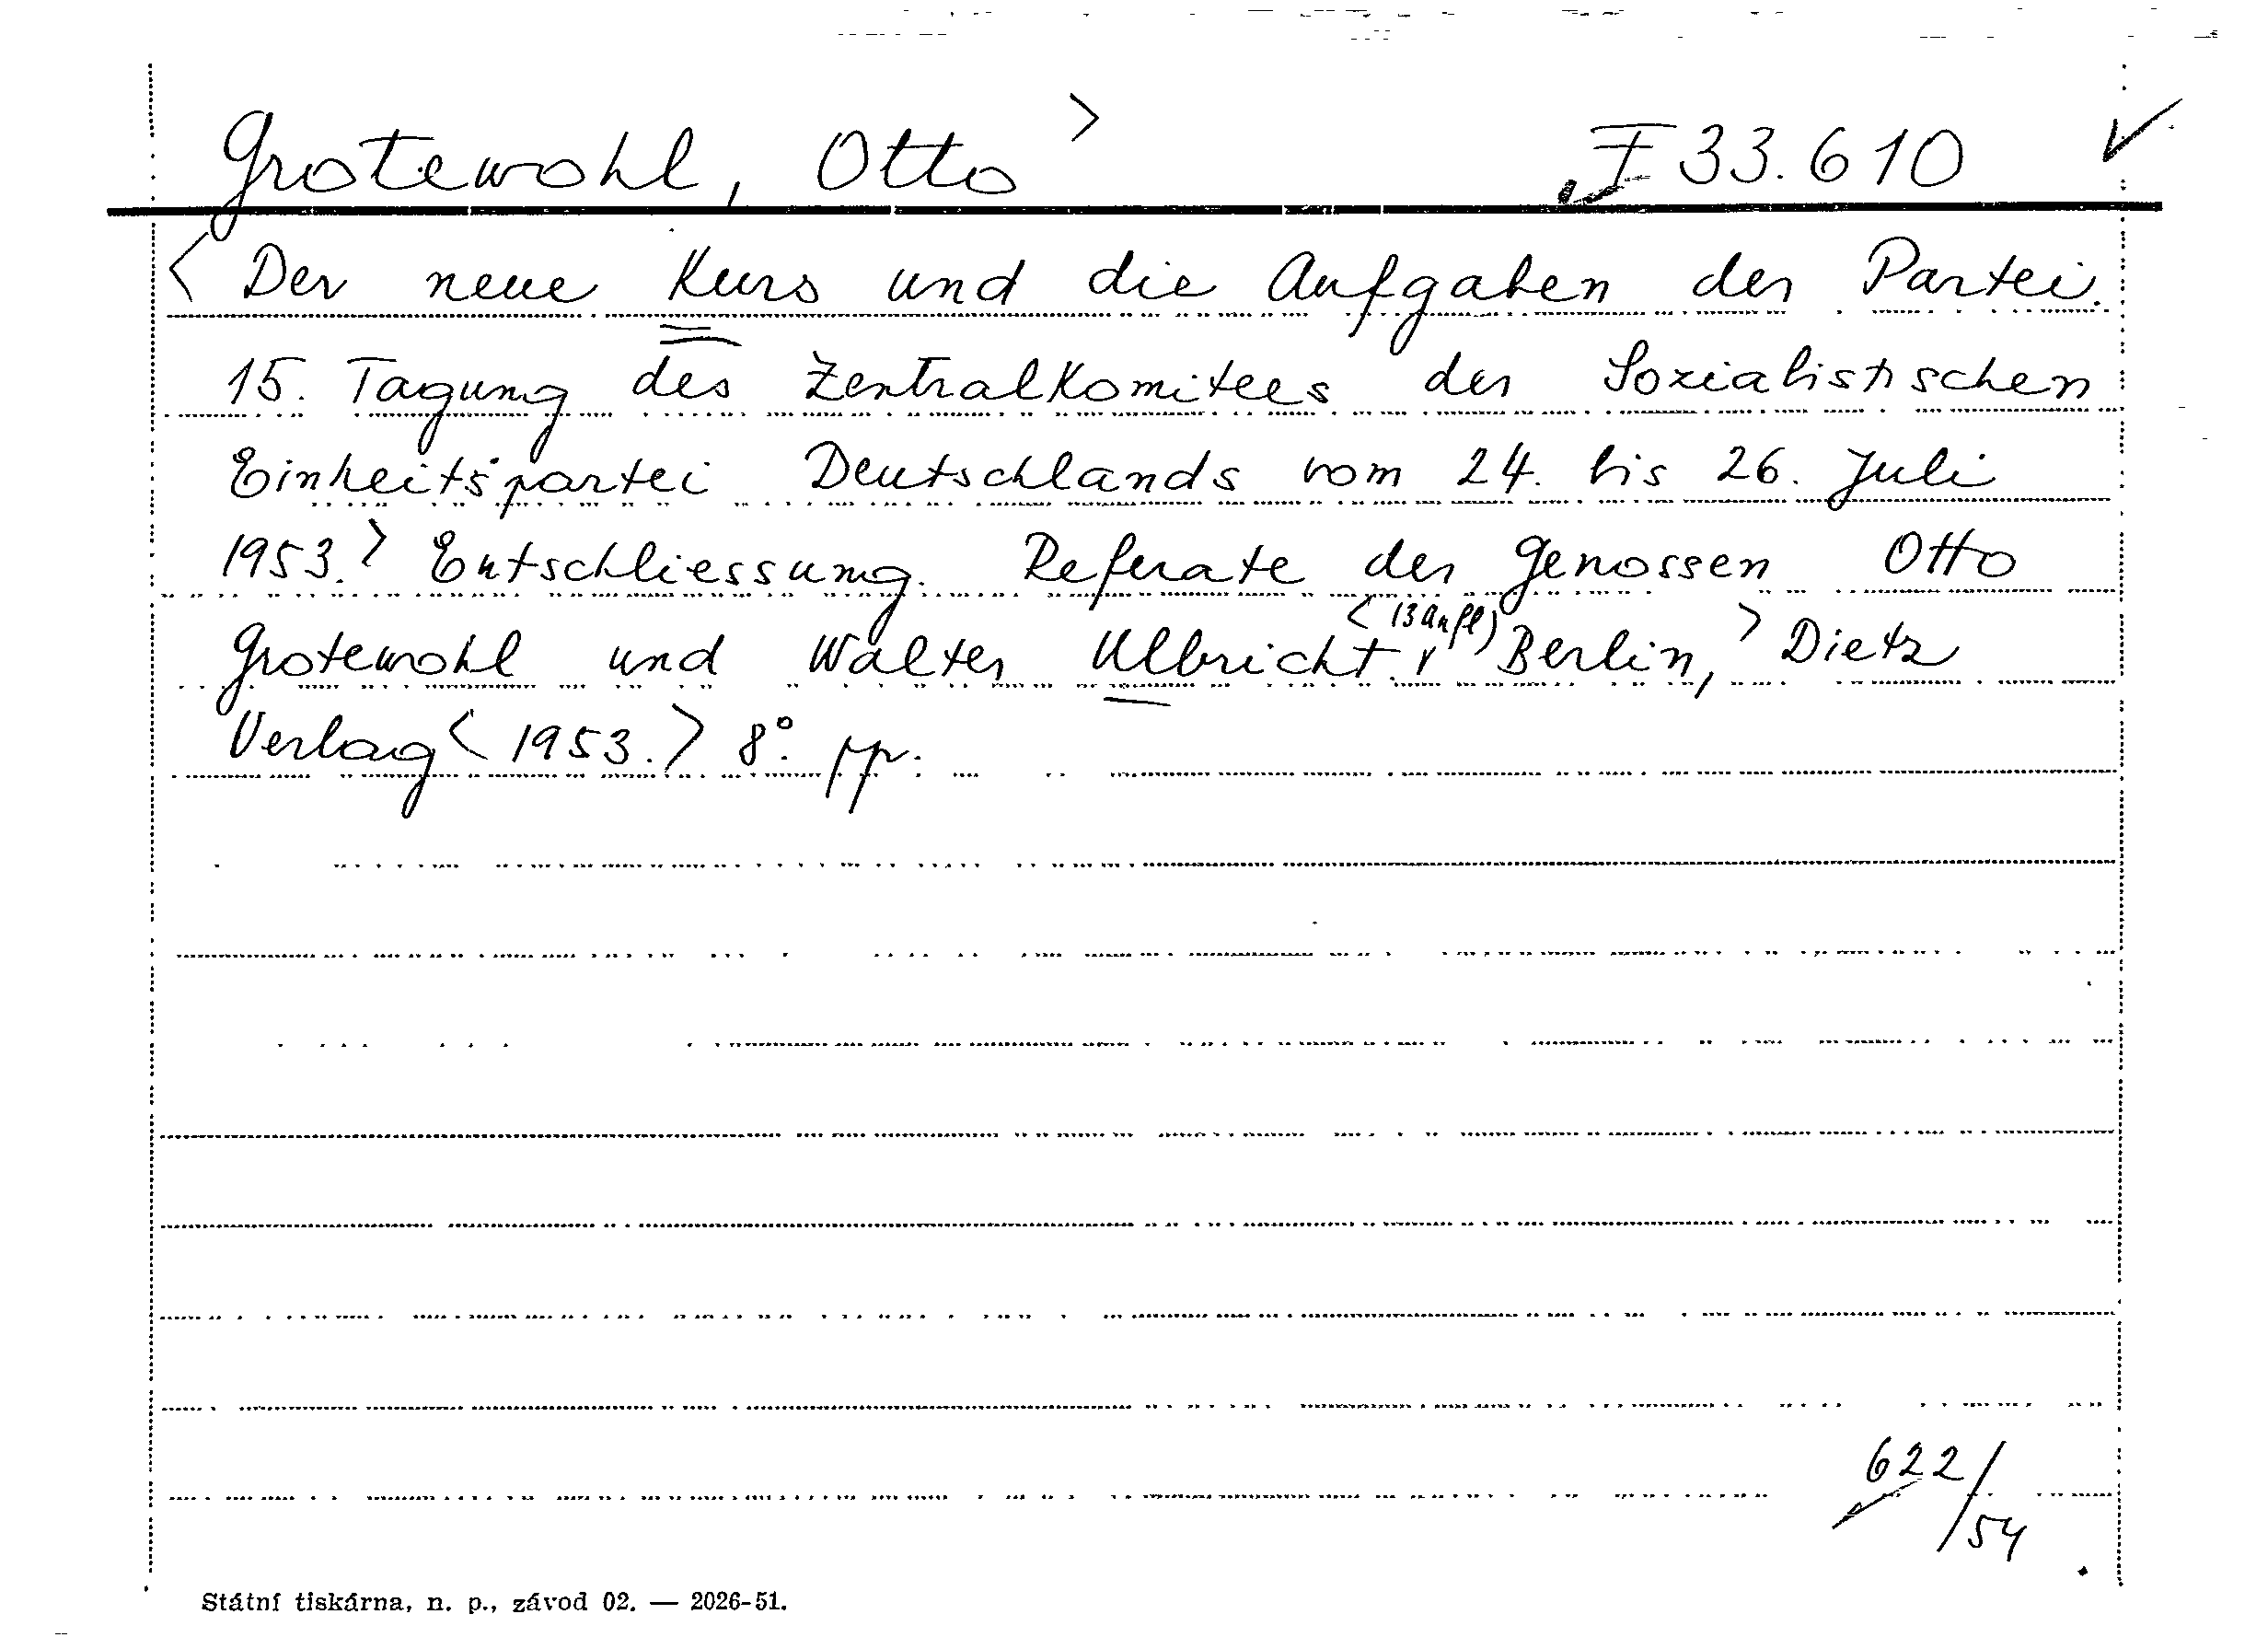 Grotewohl, Otto > F 33.610 ✓
< Der neue Kurs und die Aufgaben der Partei.
15. Tagung des Zentralkomitees der Sozialistischen
Einheitspartei Deutschlands vom 24. bis 26. Juli
1953. > Entschliessung. Referate der Genossen Otto
< (3 Aufl)
Grotewohl und Walter Ulbricht. Berlin, > Dietz
Verlag < 1953. > 8°. pp.
622/54
Státní tiskárna, n. p., závod 02. — 2026-51.